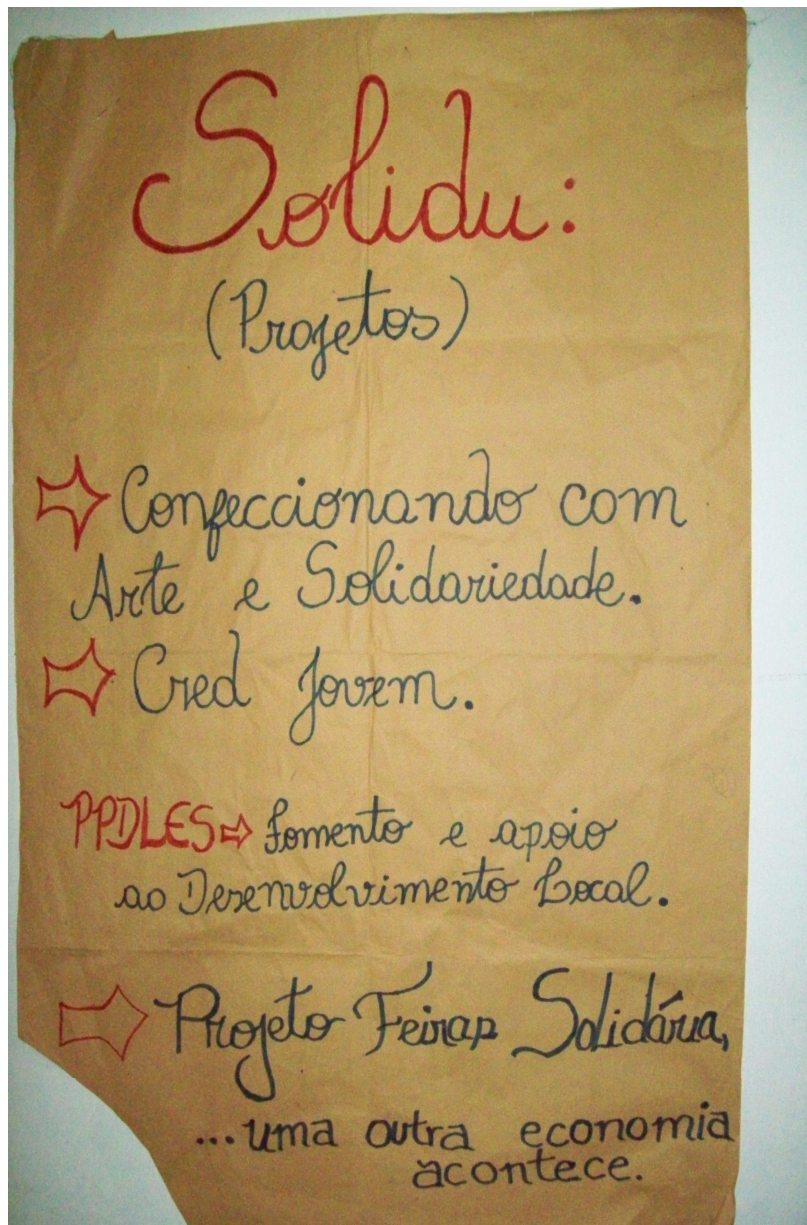 Solidu:
(Projetos)
⇨ Confeccionando com
Arte e Solidariedade.
⇨ Cred Jovem.
PPDLES ⇨ fomento e apoio
ao Desenvolvimento Local.
⇨ Projeto Feiras Solidária,
...uma outra economia
acontece.